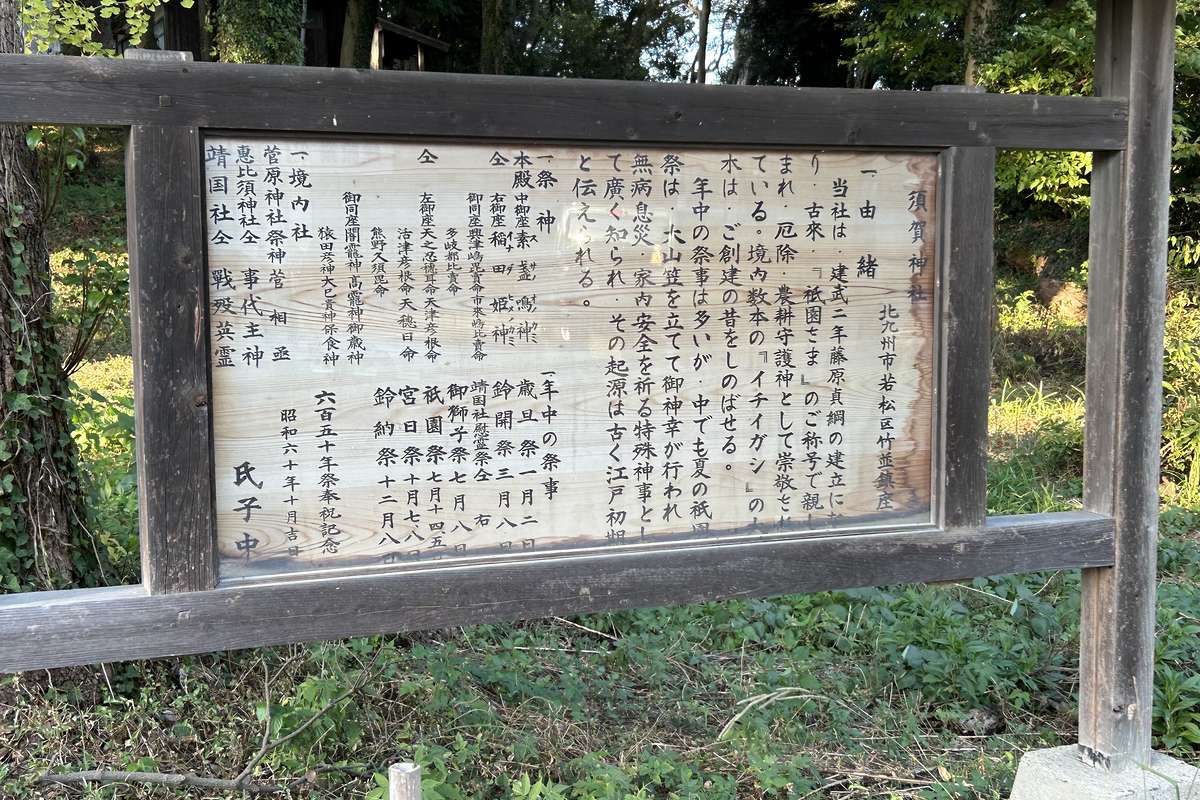 須賀神社
北九州市若松区竹並鎮座
一.由緒
当社は.建武二年藤原貞綱の建立に
り.古來.『祇園さま』のご称号で親し
まれ.厄除.農耕守護神として崇敬され
ている。境内数本の『イチイガシ』の
木は.ご創建の昔をしのばせる。
年中の祭事は多いが.中でも夏の祇園
祭は.大山笠を立てて御神幸が行われ
無病息災.家内安全を祈る特殊神事とし
て廣く知られ.その起源は古く江戸初期
と伝えられる。
一.祭神
本殿中御座素盞鳴神
仝右御座稲田姫神
御同座興津嶋毘賣命市來嶋比賣命
多岐都比賣命
仝左御座天之忍穂耳命天津彦根命
活津彦根命天穂日命
熊野久須毘命
御同座闇龗神高龗神御歳神
猿田彦神大巳貴神保食神
一.境内社
菅原神社祭神菅相丞
惠比須神社仝事代主神
靖国社仝戰殁英霊
一.年中の祭事
歳旦祭一月二日
鈴開祭三月八日
靖国社慰霊祭仝右
御獅子祭七月八日
祇園祭七月十四五日
宮日祭十月七八日
鈴納祭十二月八日
六百五十年祭奉祝記念
昭和六十年十月吉日
氏子中